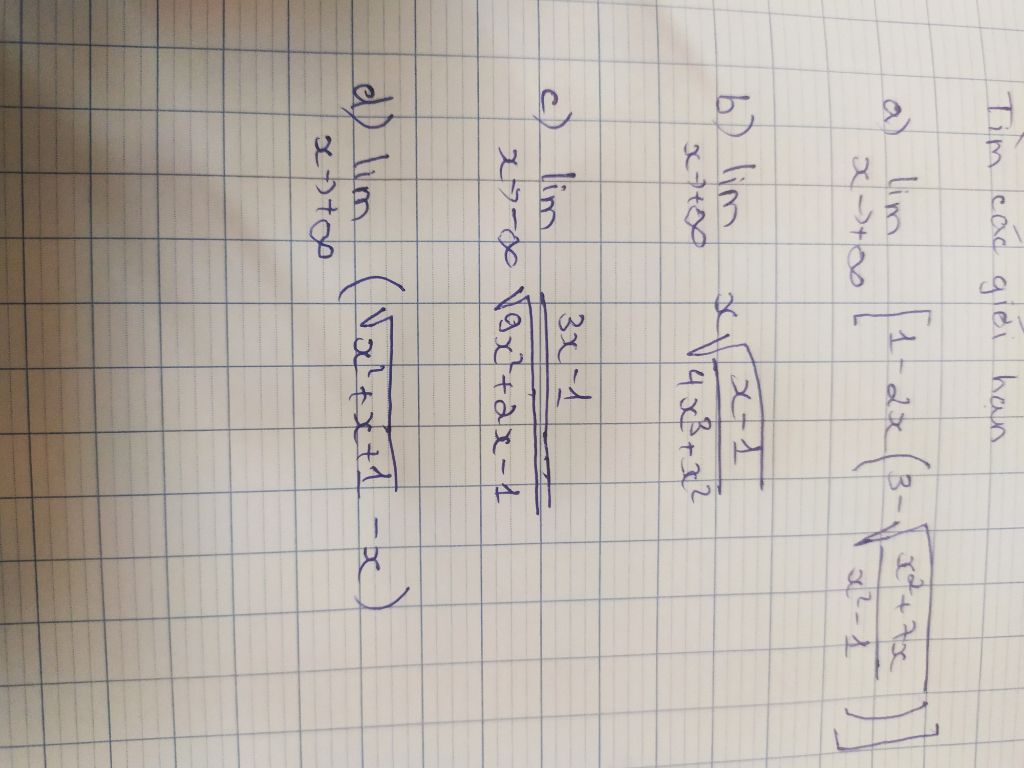 Tìm các giới hạn
a) lim x→+∞ [1 - 2x(3 - √((x² + 7x)/(x² - 1)))]
b) lim x→+∞ x√((x - 1)/(4x³ + x²))
c) lim x→-∞ (3x - 1)/√(9x² + 2x - 1)
d) lim x→+∞ (√(x² + x + 1) - x)